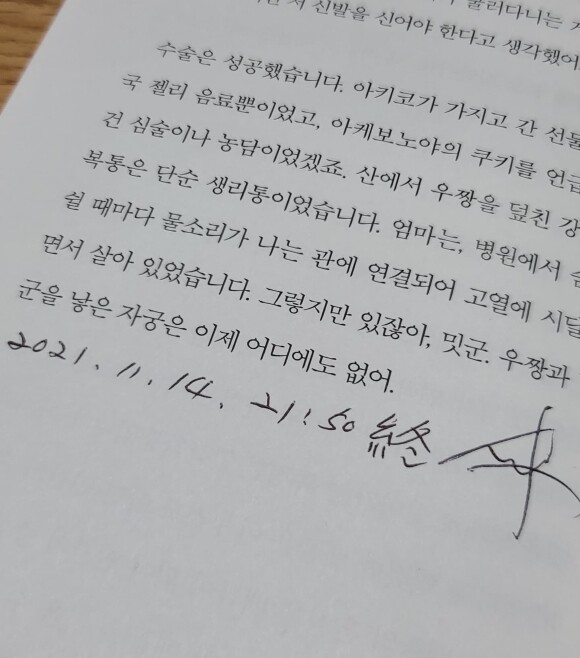 서 신발을 신어야 한다고 생각했어
수술은 성공했습니다. 아키코가 가지고 간 선물
국 젤리 음료뿐이었고, 아케보노야의 쿠키를 언급
건 심술이나 농담이었겠죠. 산에서 우짱을 덮친 강
복통은 단순 생리통이었습니다. 엄마는, 병원에서 숨
쉴 때마다 물소리가 나는 관에 연결되어 고열에 시달
면서 살아 있었습니다. 그렇지만 있잖아, 밋군. 우짱과
군을 낳은 자궁은 이제 어디에도 없어.
2021. 11. 14. 21:50 終